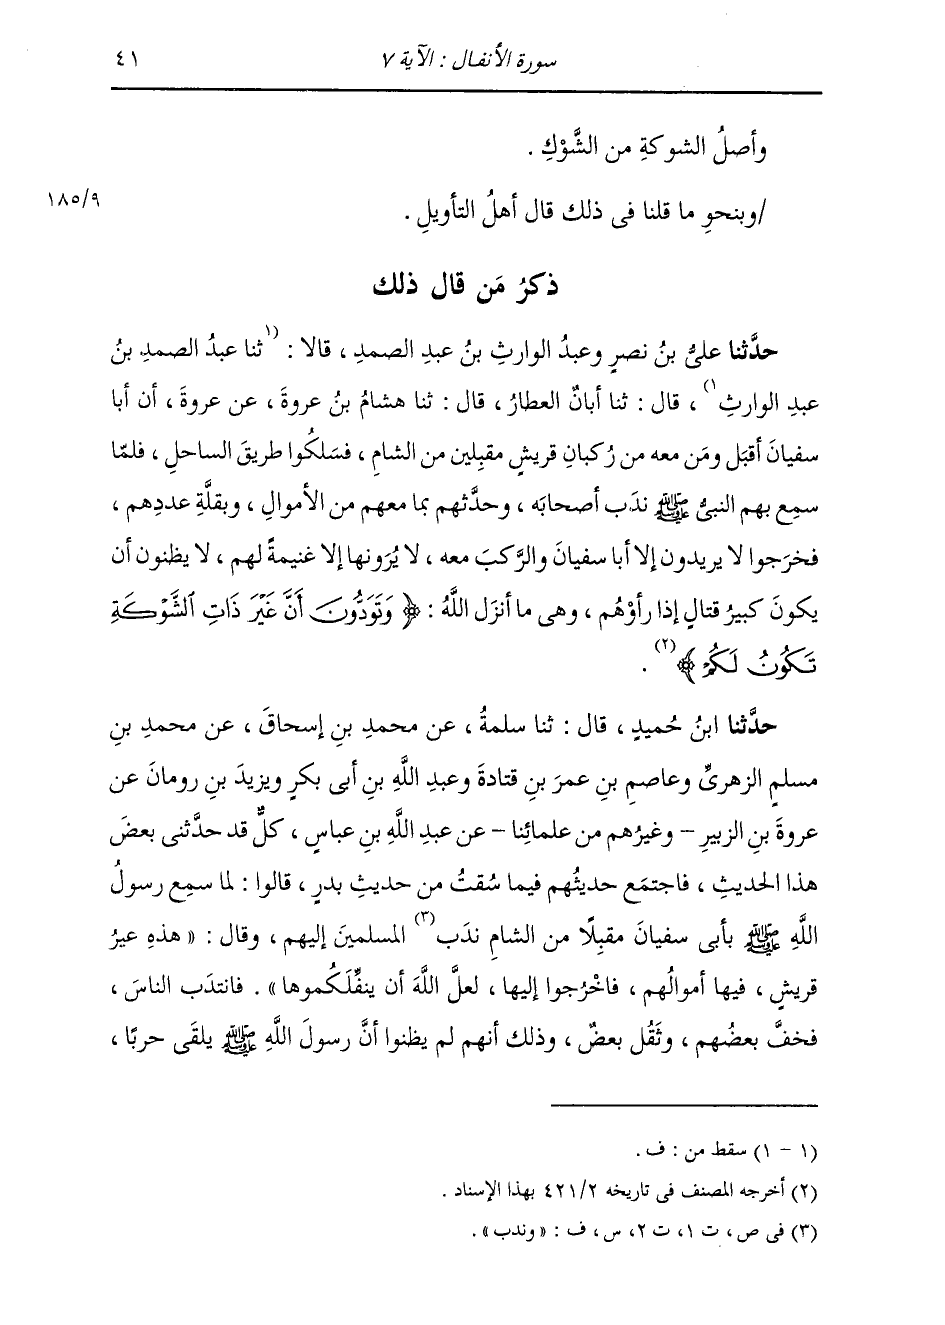 سورة الأنفال : الآية ٧
٤١
وأصلُ الشوكةِ من الشَّوْكِ .
١٨٥/٩
/وبنحوِ ما قلنا فى ذلك قال أهلُ التأويلِ .
ذكرُ مَن قال ذلك
حدَّثنا علىُّ بنُ نصرٍ وعبدُ الوارثِ بنُ عبدِ الصمدِ ، قالا : (١ثنا عبدُ الصمدِ بنُ
عبدِ الوارثِ١) ، قال : ثنا أبانٌ العطارُ ، قال : ثنا هشامُ بنُ عروةَ ، عن عروةَ ، أن أبا
سفيانَ أقبَل ومَن معه من رُكبانِ قريشٍ مقبِلين من الشامِ ، فسَلكُوا طريقَ الساحلِ ، فلمّا
سمِع بهم النبىُّ ﷺ ندَب أصحابَه ، وحدَّثهم بما معهم من الأموالِ ، وبقلَّةِ عددِهم ،
فخرَجوا لا يريدون إلا أبا سفيانَ والرَّكبَ معه ، لا يُرَونها إلا غنيمةً لهم ، لا يظنون أن
يكونَ كبيرُ قتالٍ إذا رأَوْهُم ، وهى ما أنزَل اللَّهُ : ﴿ وَتَوَدُّونَ أَنَّ غَيْرَ ذَاتِ ٱلشَّوْكَةِ
تَكُونُ لَكُمْ ﴾(٢) .
حدَّثنا ابنُ حُميدٍ ، قال : ثنا سلمةُ ، عن محمدِ بنِ إسحاقَ ، عن محمدِ بنِ
مسلمٍ الزهرىِّ وعاصمِ بنِ عمرَ بنِ قتادةَ وعبدِ اللَّهِ بنِ أبى بكرٍ ويزيدَ بنِ رومانَ عن
عروةَ بنِ الزبيرِ – وغيرُهم من علمائِنا – عن عبدِ اللَّهِ بنِ عباسٍ ، كلٌّ قد حدَّثنى بعضَ
هذا الحديثِ ، فاجتمَع حديثُهم فيما سُقتُ من حديثِ بدرٍ ، قالوا : لما سمِع رسولُ
اللَّهِ ﷺ بأبى سفيانَ مقبِلًا من الشامِ ندَب(٣) المسلمينَ إليهم ، وقال : « هذهِ عيرُ
قريشٍ ، فيها أموالُهم ، فاخْرُجوا إليها ، لعلَّ اللَّهَ أن ينفِّلَكُموها » . فانتدَب الناسَ ،
فخفَّ بعضُهم ، وثَقُل بعضٌ ، وذلك أنهم لم يظنوا أنَّ رسولَ اللَّهِ ﷺ يلقَى حربًا ،
(١ – ١) سقط من : ف .
(٢) أخرجه المصنف فى تاريخه ٤٢١/٢ بهذا الإسناد .
(٣) فى ص ، ت ١، ت ٢، س ، ف : « وندب » .